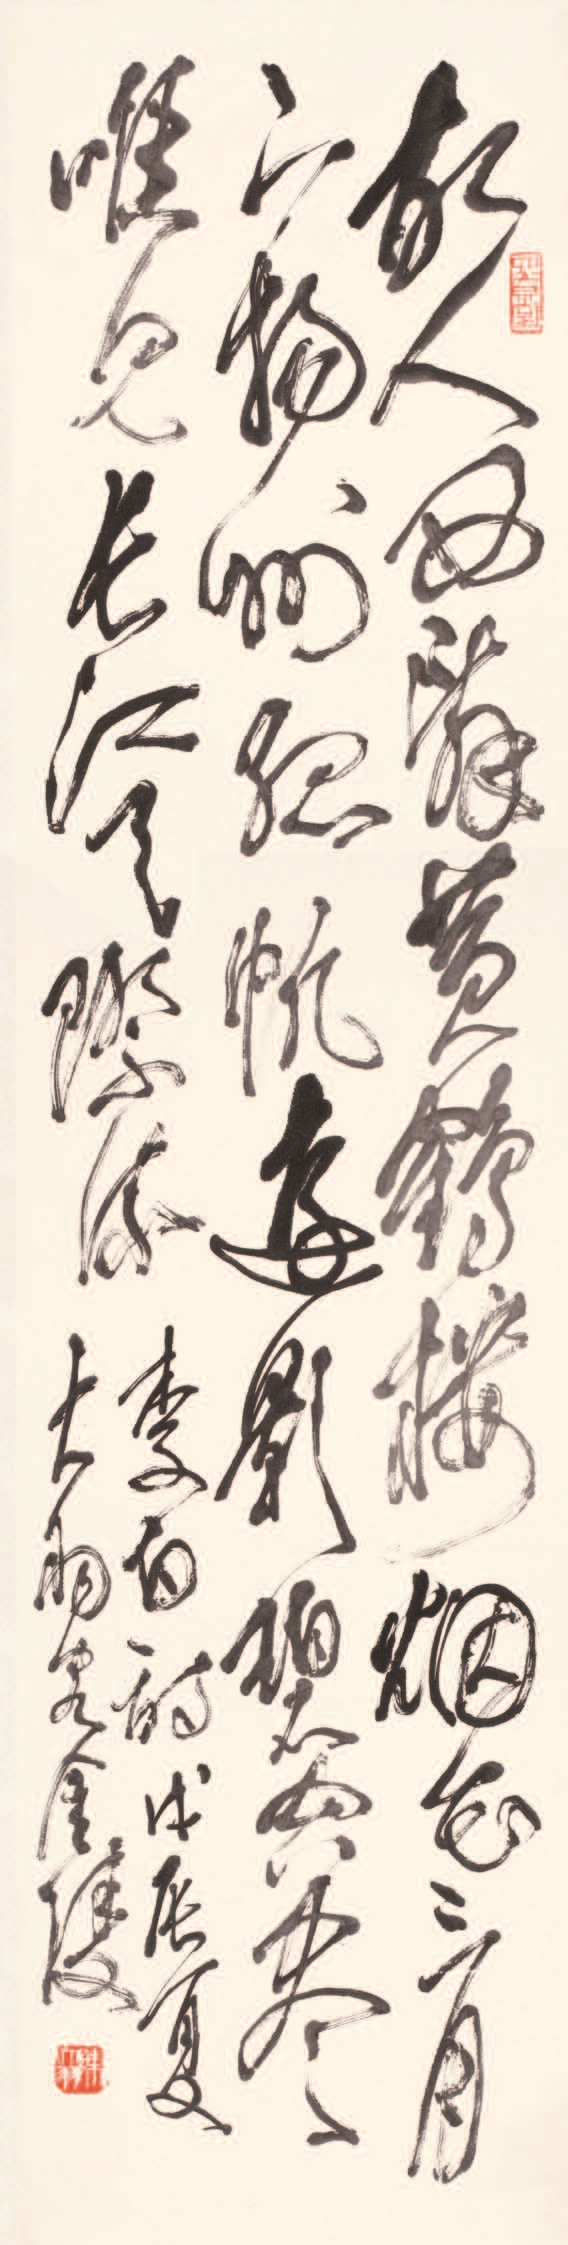 故人西辭黄鶴樓烟花三月
下揚州孤帆遠影碧空尽
唯見长江天際流
李白詩 戊辰夏
大羽客金陵